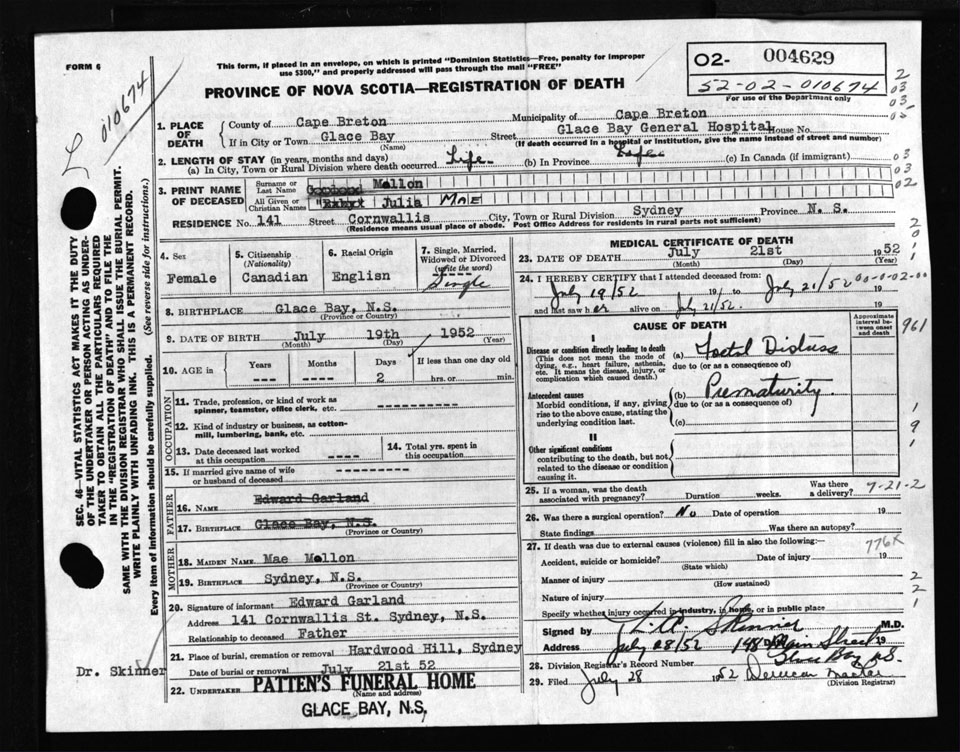 FORM 6
This form, if placed in an envelope, on which is printed "Dominion Statistics—Free, penalty for improper
use $300," and properly addressed will pass through the mail "FREE"
02- 004629
52-02-010674
For use of the Department only
010674
PROVINCE OF NOVA SCOTIA—REGISTRATION OF DEATH
2
03
03
02
1. PLACE OF DEATH
County of Cape Breton Municipality of Cape Breton
If in City or Town Glace Bay (Name) Street Glace Bay General Hospital House No.
(If death occurred in a hospital or institution, give the name instead of street and number)
2. LENGTH OF STAY (in years, months and days)
(a) In City, Town or Rural Division where death occurred Life (b) In Province (c) In Canada (if immigrant)
03
03
02
3. PRINT NAME OF DECEASED
Surname or Last Name Mellon
All Given or Christian Names Julia MAE
RESIDENCE No. 141 Street Cornwallis City, Town or Rural Division Sydney Province N. S.
(Residence means usual place of abode. Post Office Address for residents in rural parts not sufficient)
4. Sex
Female
5. Citizenship
(Nationality)
Canadian
6. Racial Origin
English
7. Single, Married, Widowed or Divorced
(write the word)
Single
8. BIRTHPLACE Glace Bay, N.S.
(Province or Country)
9. DATE OF BIRTH July 19th 1952
(Month) (Day) (Year)
10. AGE in Years Months Days If less than one day old
--- ---- 2 hrs. or min.
OCCUPATION
11. Trade, profession, or kind of work as
spinner, teamster, office clerk, etc. ----------
12. Kind of industry or business, as cotton-
mill, lumbering, bank, etc.
13. Date deceased last worked
at this occupation -----
14. Total yrs. spent in
this occupation
15. If married give name of wife
or husband of deceased ----------
FATHER
16. NAME Edward Garland
17. BIRTHPLACE Glace Bay, N.S.
(Province or Country)
MOTHER
18. MAIDEN NAME Mae Mellon
19. BIRTHPLACE Sydney, N.S.
(Province or Country)
20. Signature of informant Edward Garland
Address 141 Cornwallis St. Sydney, N.S.
Relationship to deceased Father
21. Place of burial, cremation or removal Hardwood Hill, Sydney
Date of burial or removal July 21st 52
Dr. Skinner
22. UNDERTAKER PATTEN'S FUNERAL HOME
(Name and address)
GLACE BAY, N.S.
MEDICAL CERTIFICATE OF DEATH
23. DATE OF DEATH July 21st 1952
(Month) (Day) (Year)
24. I HEREBY CERTIFY that I attended deceased from
July 19/52 19 to July 21/52 19
and last saw her alive on July 21/52. 19
CAUSE OF DEATH
Approximate interval between onset and death
961
I
Disease or condition directly leading to death
(This does not mean the mode of
dying, e.g., heart failure, asthenia,
etc. It means the disease, injury, or
complication which caused death.)
(a) Foetal
due to (or as a consequence of)
Antecedent causes
Morbid conditions, if any, giving
rise to the above cause, stating the
underlying condition last.
(b) Prematurity.
due to (or as a consequence of)
(c)
II
Other significant conditions
contributing to the death, but not
related to the disease or condition
causing it.
1
9
1
25. If a woman, was the death
associated with pregnancy? Duration weeks. Was there a delivery?
7-21-2
26. Was there a surgical operation? No Date of operation 19
State findings Was there an autopsy?
27. If death was due to external causes (violence) fill in also the following:—
776X
Accident, suicide or homicide? Date of injury 19
(State which)
Manner of injury
(How sustained)
Nature of injury
Specify whether injury occurred in industry, in home, or in public place
2
2
1
Signed by Skinner M.D.
Address July 28/52 148 Main Street Date 19
Glace Bay N.S.
28. Division Registrar's Record Number
29. Filed July 28 1952
(Division Registrar)
SEC. 46—VITAL STATISTICS ACT MAKES IT THE DUTY
OF THE UNDERTAKER OR PERSON ACTING AS UNDER-
TAKER TO OBTAIN ALL THE PARTICULARS REQUIRED
IN THE "REGISTRATION OF DEATH" AND TO FILE THE
SAME WITH THE DIVISION REGISTRAR WHO SHALL ISSUE THE BURIAL PERMIT.
WRITE PLAINLY WITH UNFADING INK. THIS IS A PERMANENT RECORD.
Every item of information should be carefully supplied. (See reverse side for instructions.)